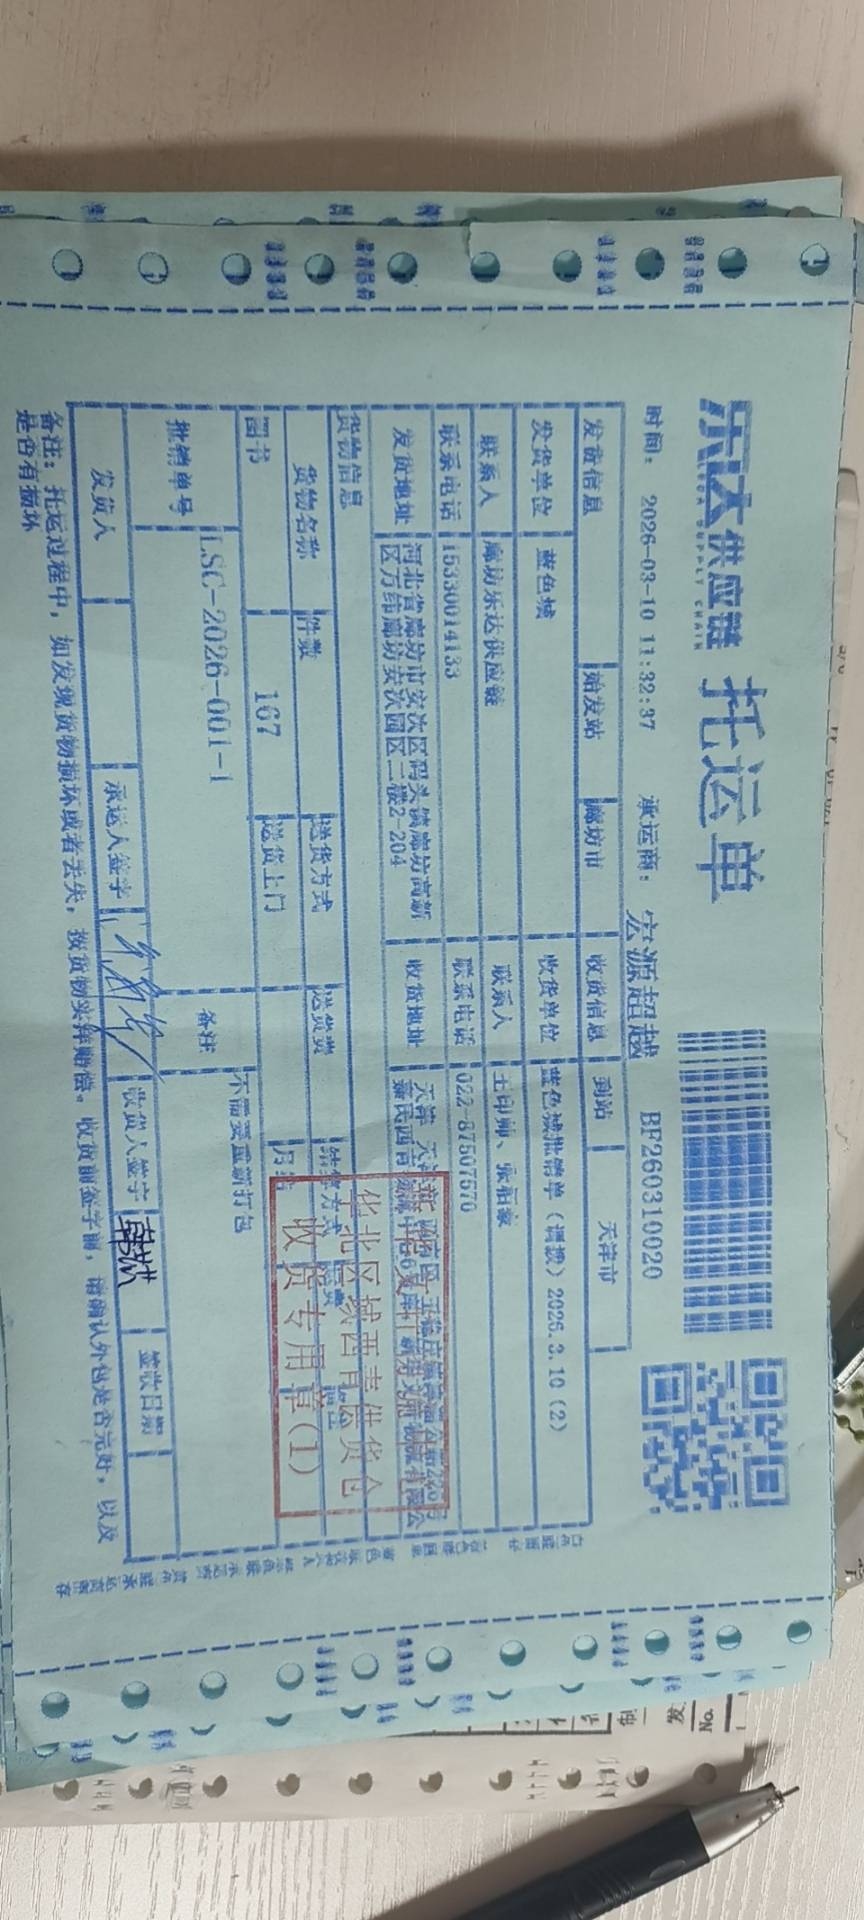 乐达供应链 托运单
LEDA SUPPLY CHAIN
BF260310020
时间： 2026-03-10 11:32:37 承运商： 宏源超越
发货信息 始发站 廊坊市 收货信息 到站 天津市
发货单位 蓝色城 收货单位 蓝色城批销单（调拨）2026.3.10（2）
联系人 廊坊乐达供应链 联系人
联系电话 15330014133 联系电话 022-87507570
发货地址 河北省廊坊市安次区码头镇廊坊高新
区万纬廊坊安次园区二楼2-204
收货地址 天津
货物信息
货物名称 件数 送货方式 送货费 结算方式
图书 167 送货上门 月结
批销单号 LSG-2026-001-1 备注 不需要重新打包
发货人 承运人签字 收货人签字 韩斌 签收日期
备注：托运过程中，如发现货物损坏或者丢失，按货物实洋赔偿。收货前签字前，请确认外包是否完好，以及
是否有损坏
华北区域西青供货仓
收货专用章(1)
No.